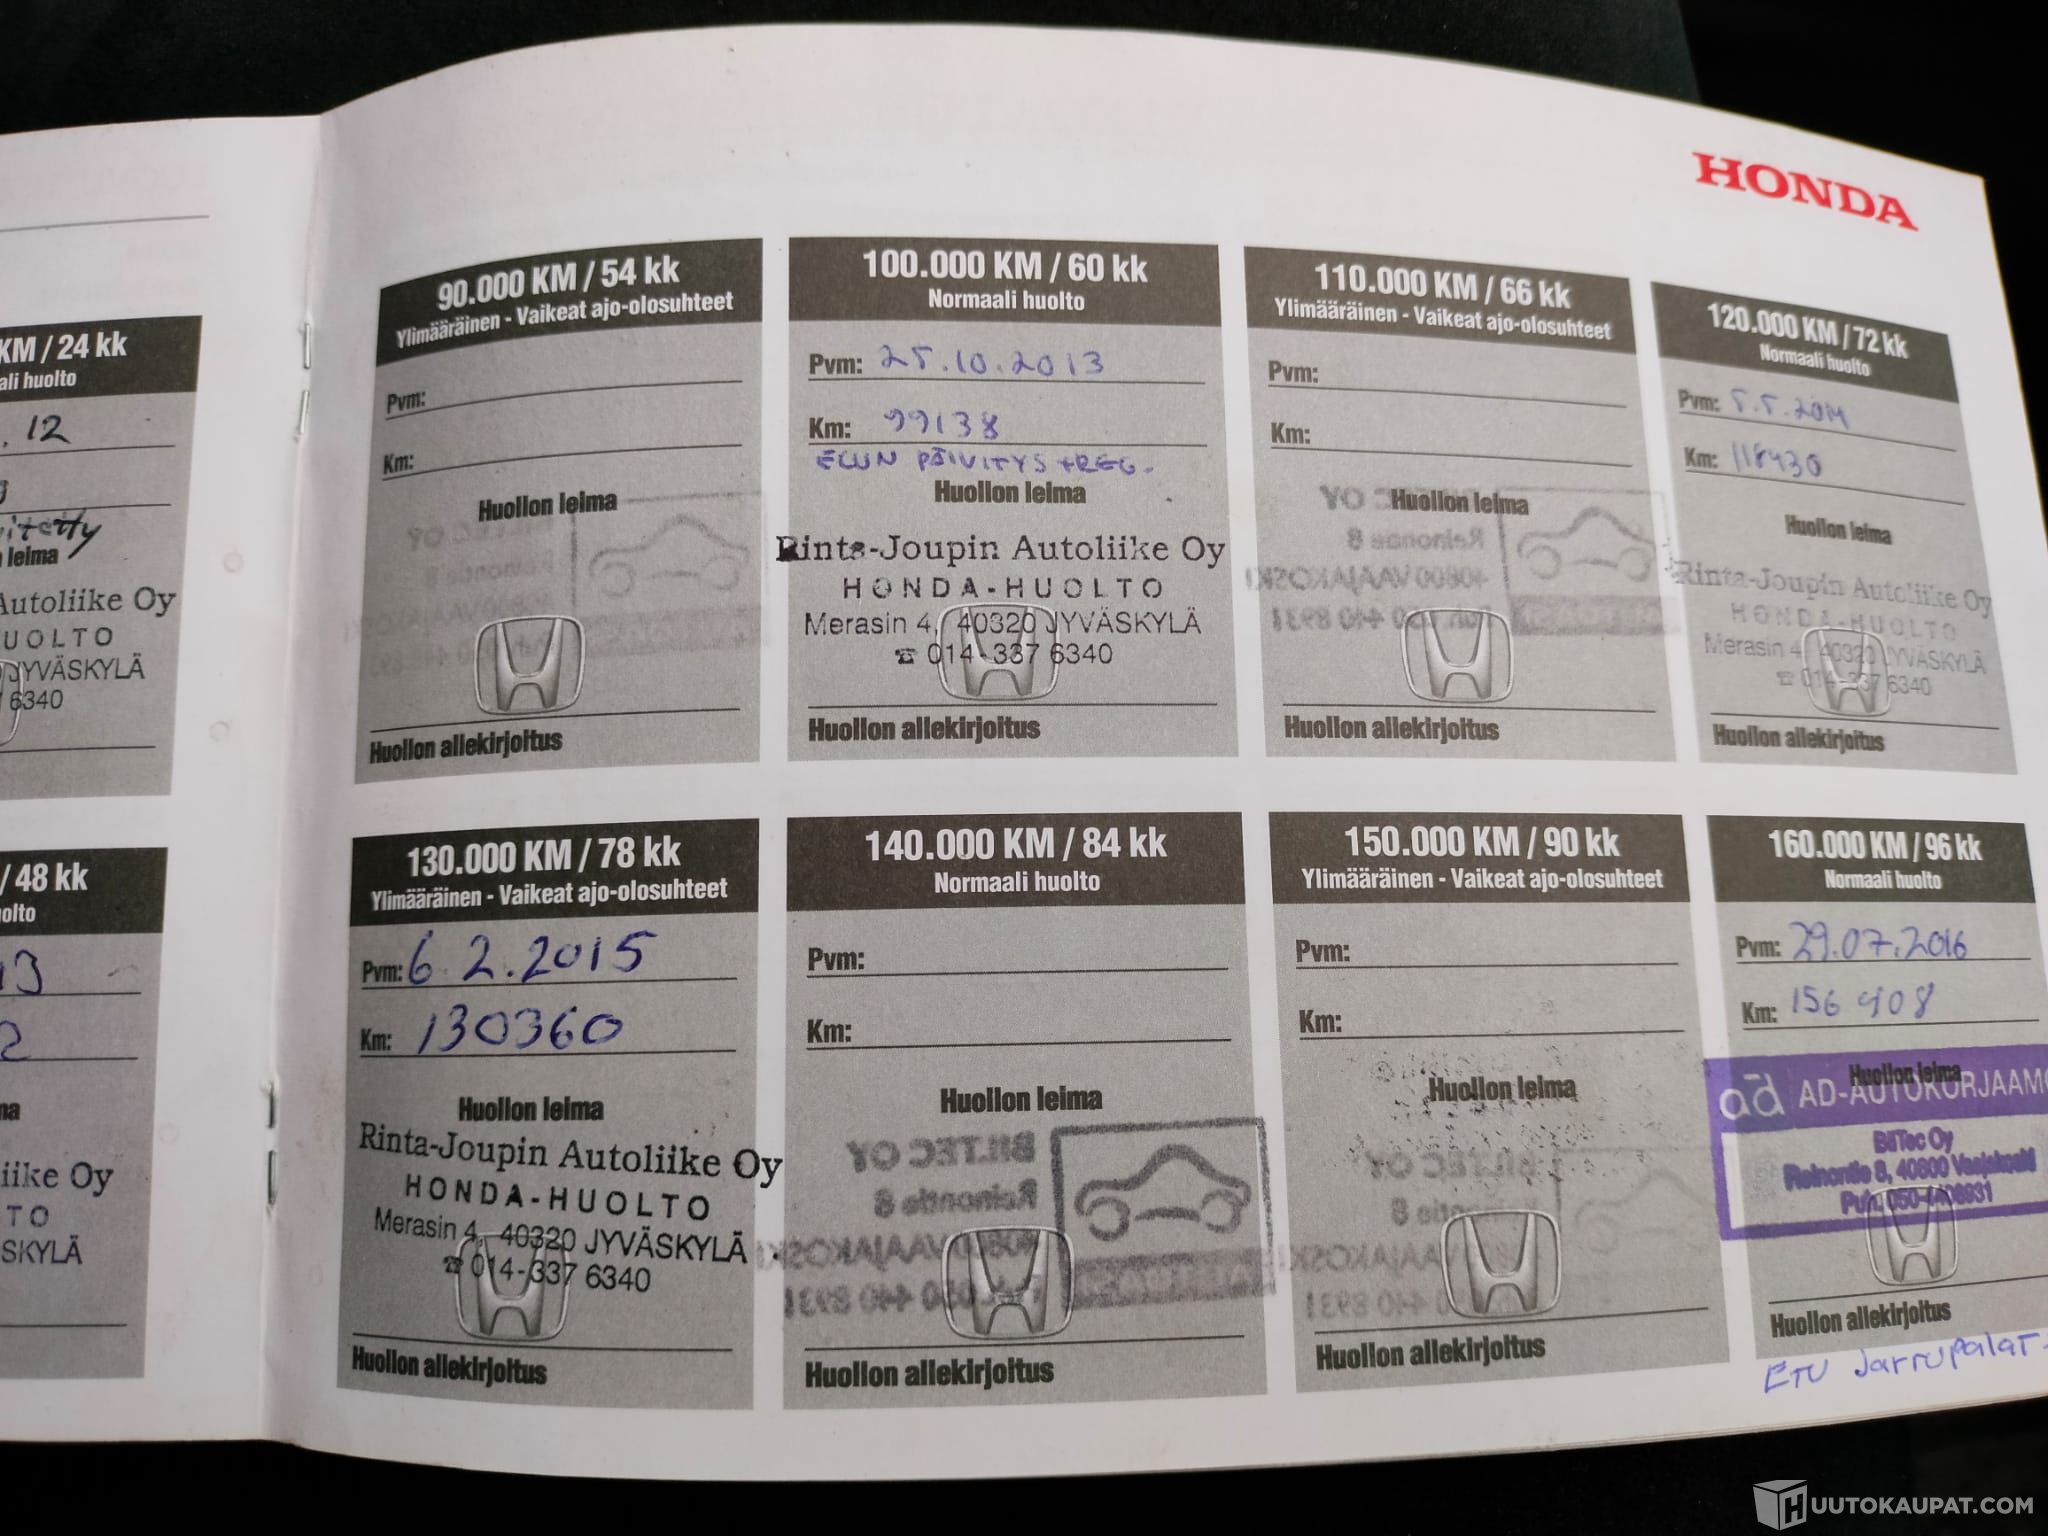 HONDA
KM / 24 kk
ali huolto
. 12
leima
Autoliike Oy
UOLTO
JYVÄSKYLÄ
6340
90.000 KM / 54 kk
Ylimääräinen - Vaikeat ajo-olosuhteet
Pvm:
Km:
Huollon leima
Huollon allekirjoitus
100.000 KM / 60 kk
Normaali huolto
Pvm: 25.10.2013
Km: 99138
ECUN PÄIVITYS + REG.
Huollon leima
Rinta-Joupin Autoliike Oy
HONDA-HUOLTO
Merasin 4, 40320 JYVÄSKYLÄ
☎ 014-337 6340
Huollon allekirjoitus
110.000 KM / 66 kk
Ylimääräinen - Vaikeat ajo-olosuhteet
Pvm:
Km:
Huollon leima
Huollon allekirjoitus
120.000 KM / 72 kk
Normaali huolto
Pvm: 5.5.2014
Km: 118430
Huollon leima
Rinta-Joupin Autoliike Oy
HONDA-HUOLTO
Merasin 4, 40320 JYVÄSKYLÄ
☎ 014-337 6340
Huollon allekirjoitus
/ 48 kk
olto
13
2
ma
iike Oy
TO
SKYLÄ
130.000 KM / 78 kk
Ylimääräinen - Vaikeat ajo-olosuhteet
Pvm: 6.2.2015
Km: 130360
Huollon leima
Rinta-Joupin Autoliike Oy
HONDA-HUOLTO
Merasin 4, 40320 JYVÄSKYLÄ
☎ 014-337 6340
Huollon allekirjoitus
140.000 KM / 84 kk
Normaali huolto
Pvm:
Km:
Huollon leima
BILTEC OY
Reinontie 8
40800 VAAJAKOSKI
Puh. 050 440 8931
Huollon allekirjoitus
150.000 KM / 90 kk
Ylimääräinen - Vaikeat ajo-olosuhteet
Pvm:
Km:
Huollon leima
Huollon allekirjoitus
160.000 KM / 96 kk
Normaali huolto
Pvm: 29.07.2016
Km: 156 908
Huollon leima
ad AD-AUTOKORJAAMO
BilTec Oy
Reinontie 8, 40800 Vaajakoski
Puh. 050-4408931
Huollon allekirjoitus
ETU Jarrupalat
HUUTOKAUPAT.COM